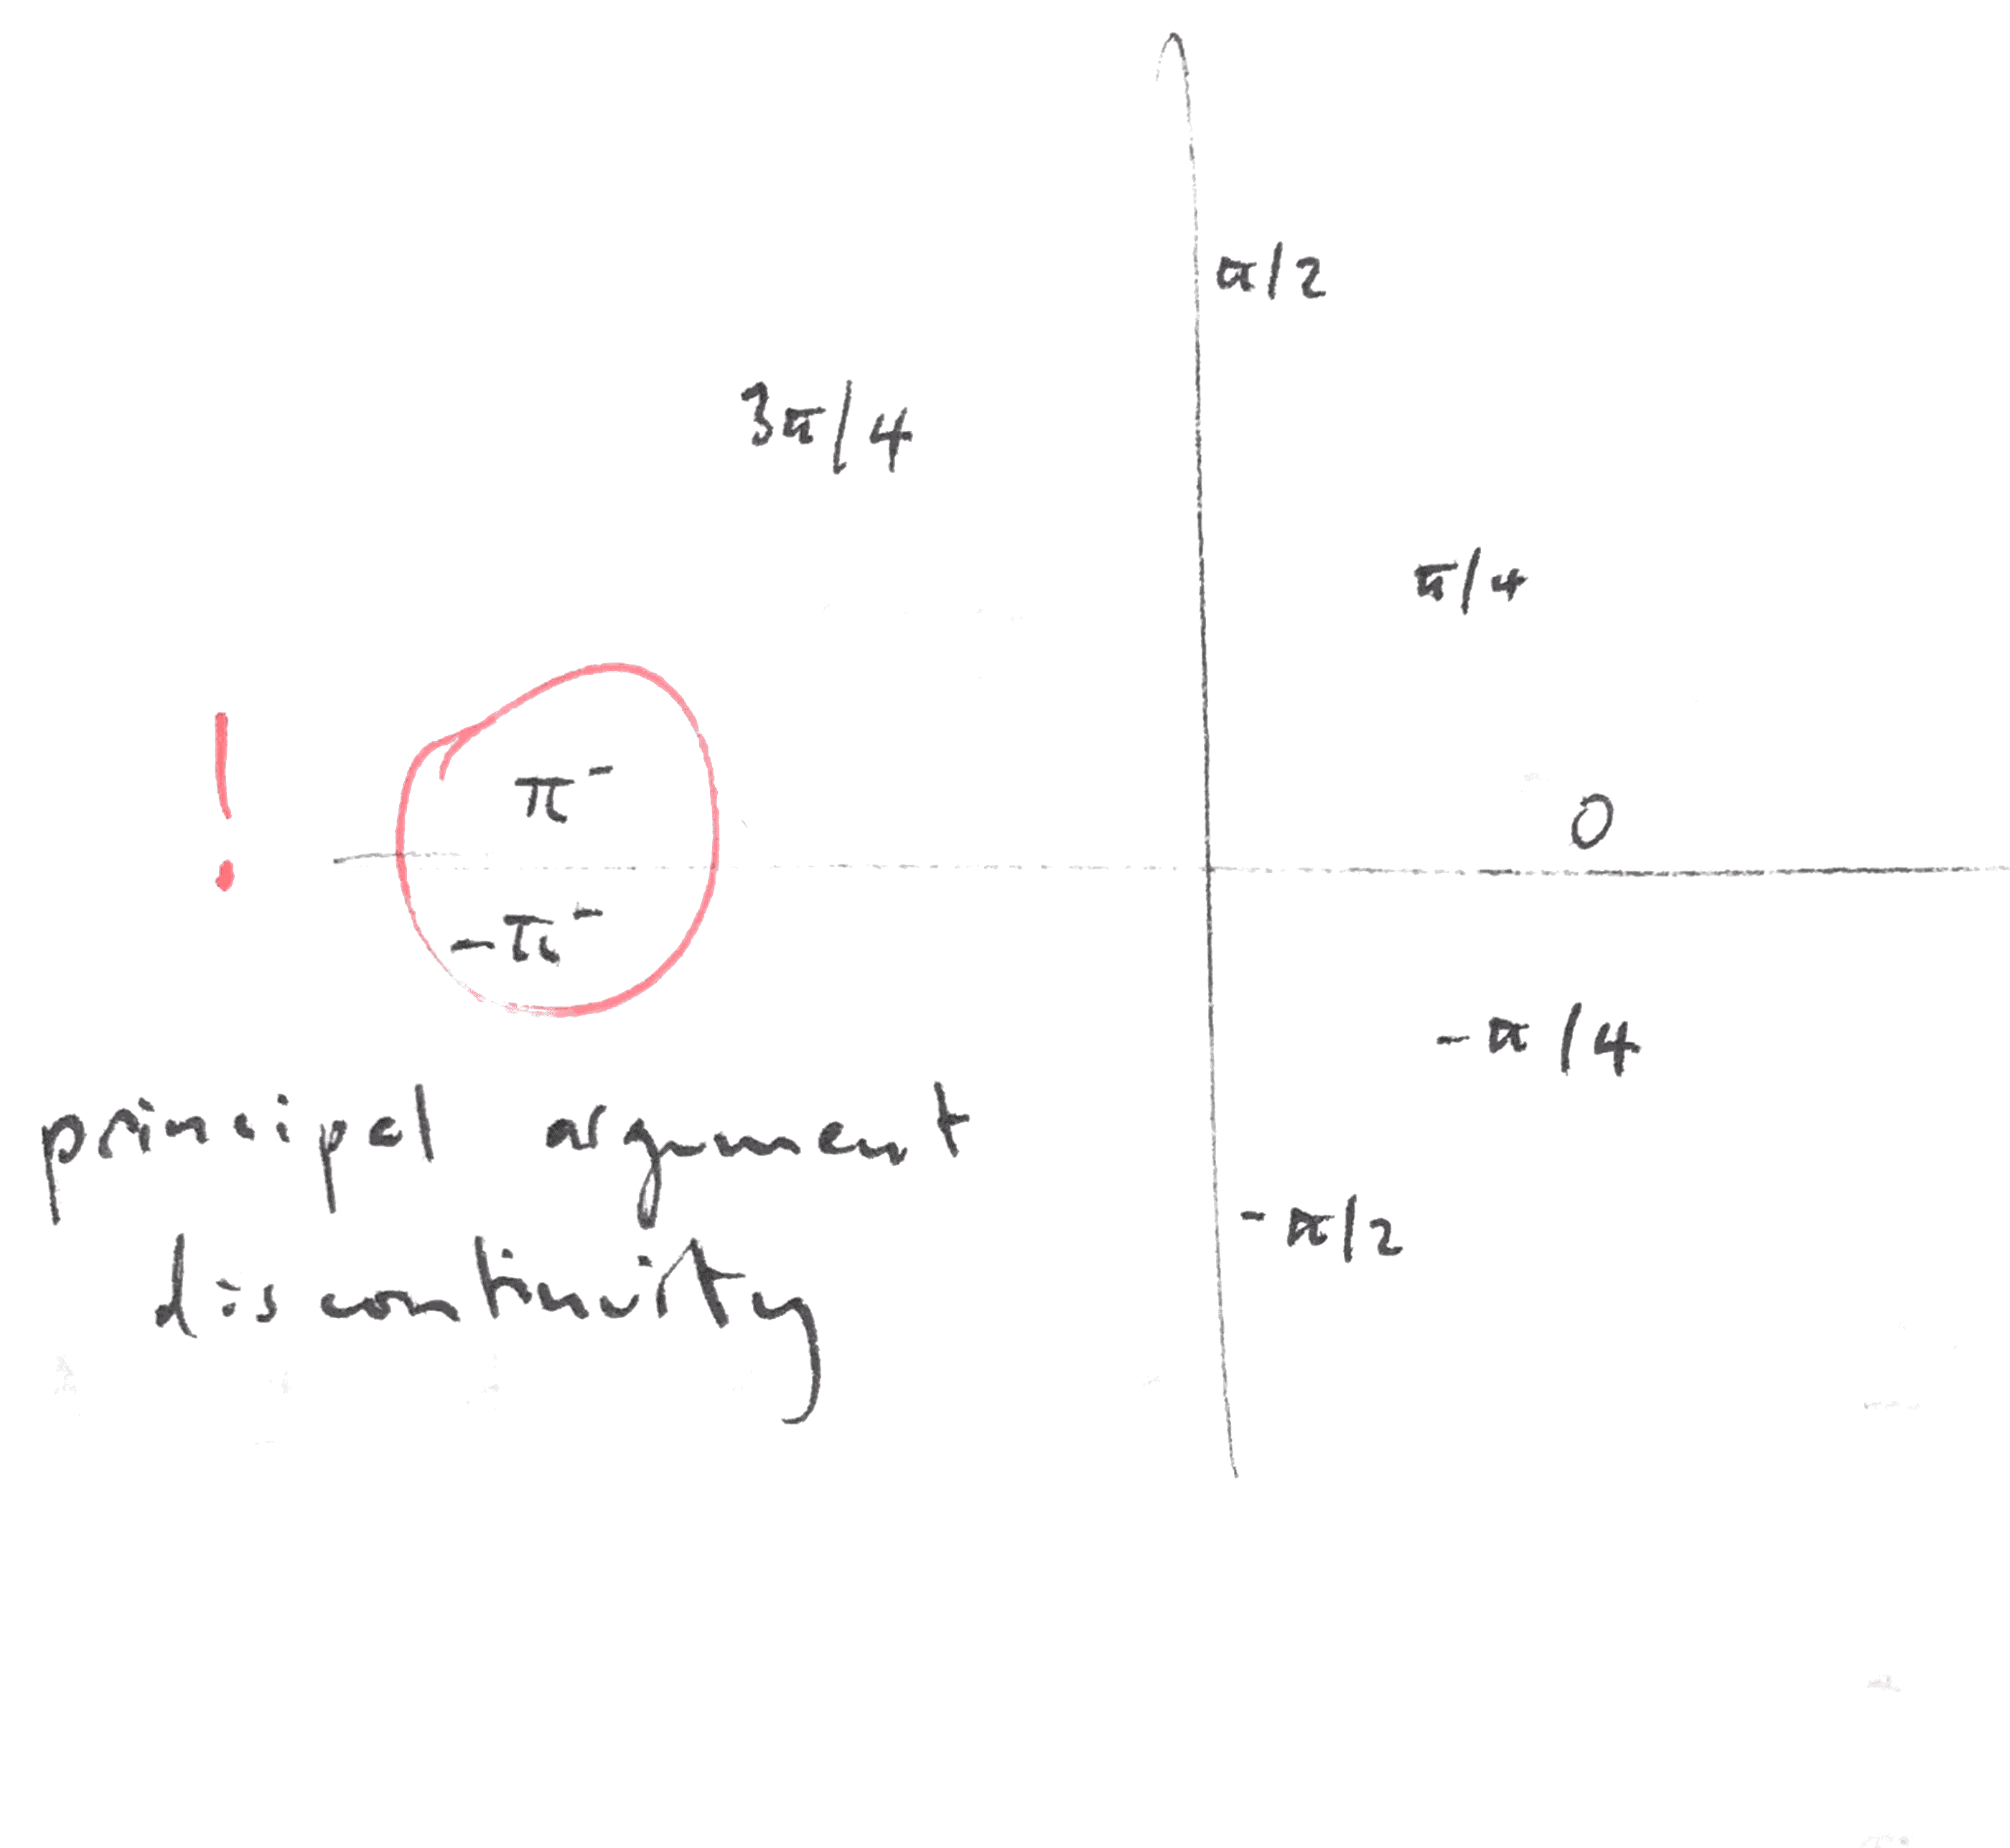 π/2
3π/4
π/4
!
π⁻
0
-π⁻
-π/4
principal argument
-π/2
discontinuity